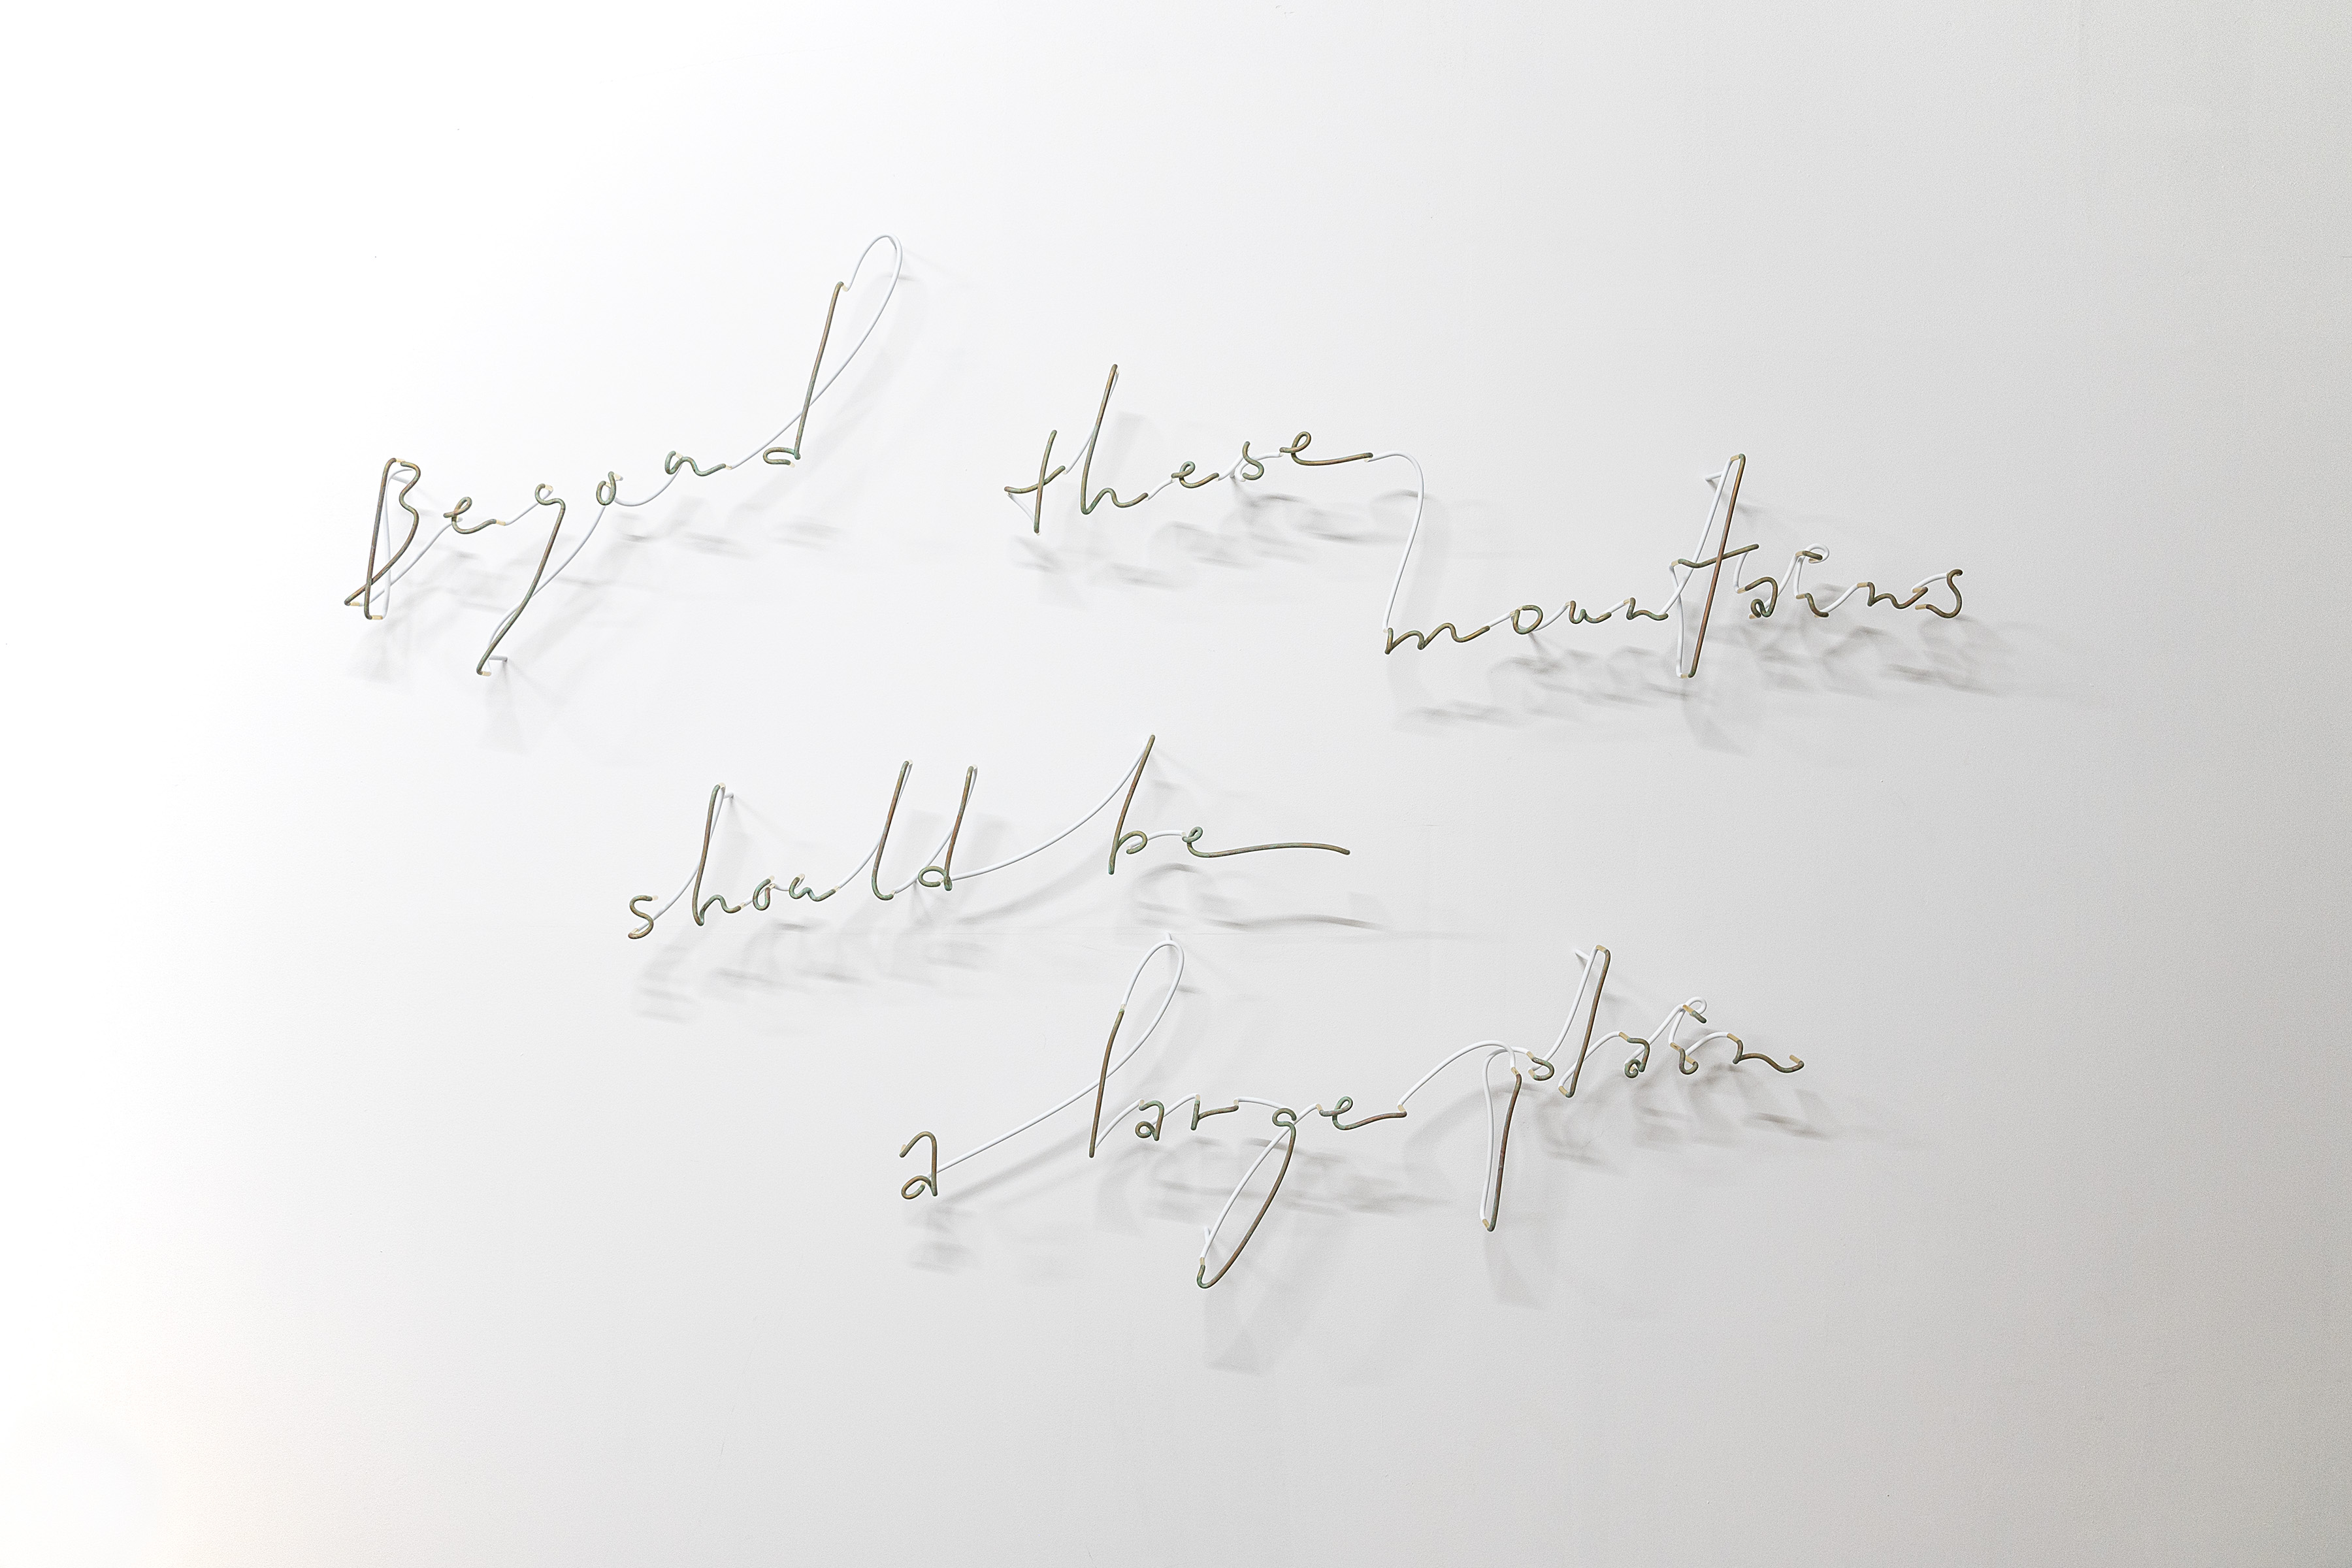 Beyond these mountains
should be
a large plain